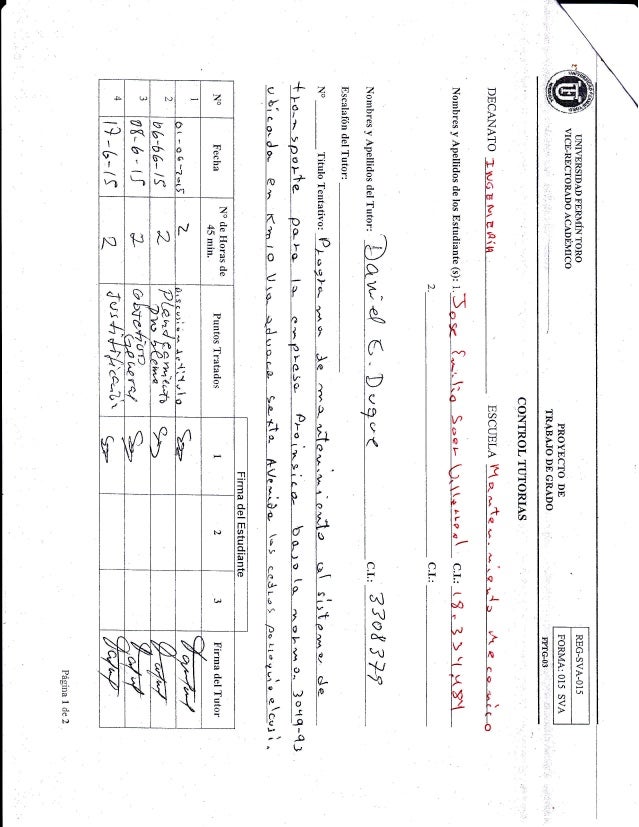 UNIVERSIDAD FERMÍN TORO
VICE-RECTORADO ACADÉMICO
PROYECTO DE
TRABAJO DE GRADO
REG-SVA-015
FORMA: 015 SVA
FPTG-03
CONTROL TUTORIAS
DECANATO INGENIERIA ESCUELA Mantenimiento Mecanico
Nombres y Apellidos de los Estudiante (s): 1. Jose Emilio Soer Villarreal C.I.: 18.334.484
2. C.I.:
Nombres y Apellidos del Tutor: Daniel E. Duque C.I.: 3308379
Escalafón del Tutor:
Nº Título Tentativo: Programa de mantenimiento al sistema de
transporte para la empresa Proinsica bajo la norma. 3049-93
ubicada en Km 10 Via aduana sexta Avenida los cedros
Firma del Estudiante
Nº Fecha Nº de Horas de 45 min. Puntos Tratados 1 2 3 Firma del Tutor
1 01-06-2015 2 Discusion de titulo
2 06-06-15 2 Planteamiento Problema
3 08-6-15 2 objetivo General
4 17-6-15 2 Justificación
Página 1 de 2